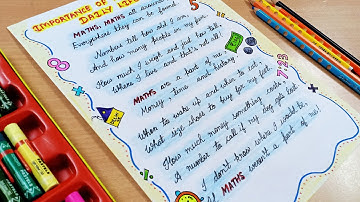 IMPORTANCE OF
DAILY LIFE
MATHS, MATHS all around
Everywhere they can be found.
Numbers tell how old I am,
And how many people in my fam.
How much I weigh and just how tall,
Where I live and that's not all!
MATHS are a part of me
Money, time and history
When to wake up and when to eat,
What size shoes to buy for my feet.
How much money something costs,
A number to call if my dog gets lost
I don't know where I would be,
If MATHS weren't a part of me!
5
8
7:23